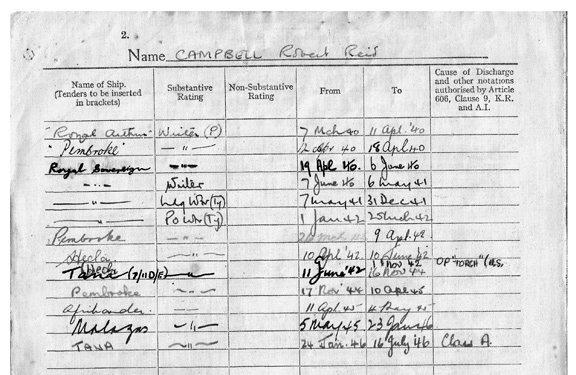 2.
Name CAMPBELL Robert Reid
Name of Ship. (Tenders to be inserted in brackets) Substantive Rating Non-Substantive Rating From To Cause of Discharge and other notations authorised by Article 606, Clause 9, K.R. and A.I.
"Royal Arthur" Writer (P) 7 Mch 40 11 Apl '40
"Pembroke" — " — 12 Apr 40 18 Apl 40
Royal Sovereign — " — 19 Apl 40. 6 June 40
— " — Writer 7 June 40 6 May 41
— " — Ldg Wtr (Ty) 7 May 41 31 Dec 41
— " — PO Wtr (Ty) 1 Jan 42 25 Mch 42
Pembroke — " — 9 Apl 42
Hecla — " — 10 Apl '42. 10 June '42
Hecla 11 Nov 42 OP "TORCH"
Tana (7/11 D/F) — " — 11 June '42 16 Nov 44
Pembroke — " — 17 Nov 44 10 Apl 45
Afrikander — " — 11 Apl 45 4 May 45
Malagas — " — 5 May 45 23 Jan 46
TANA — " — 24 Jan. 46 16 July '46 Class A.